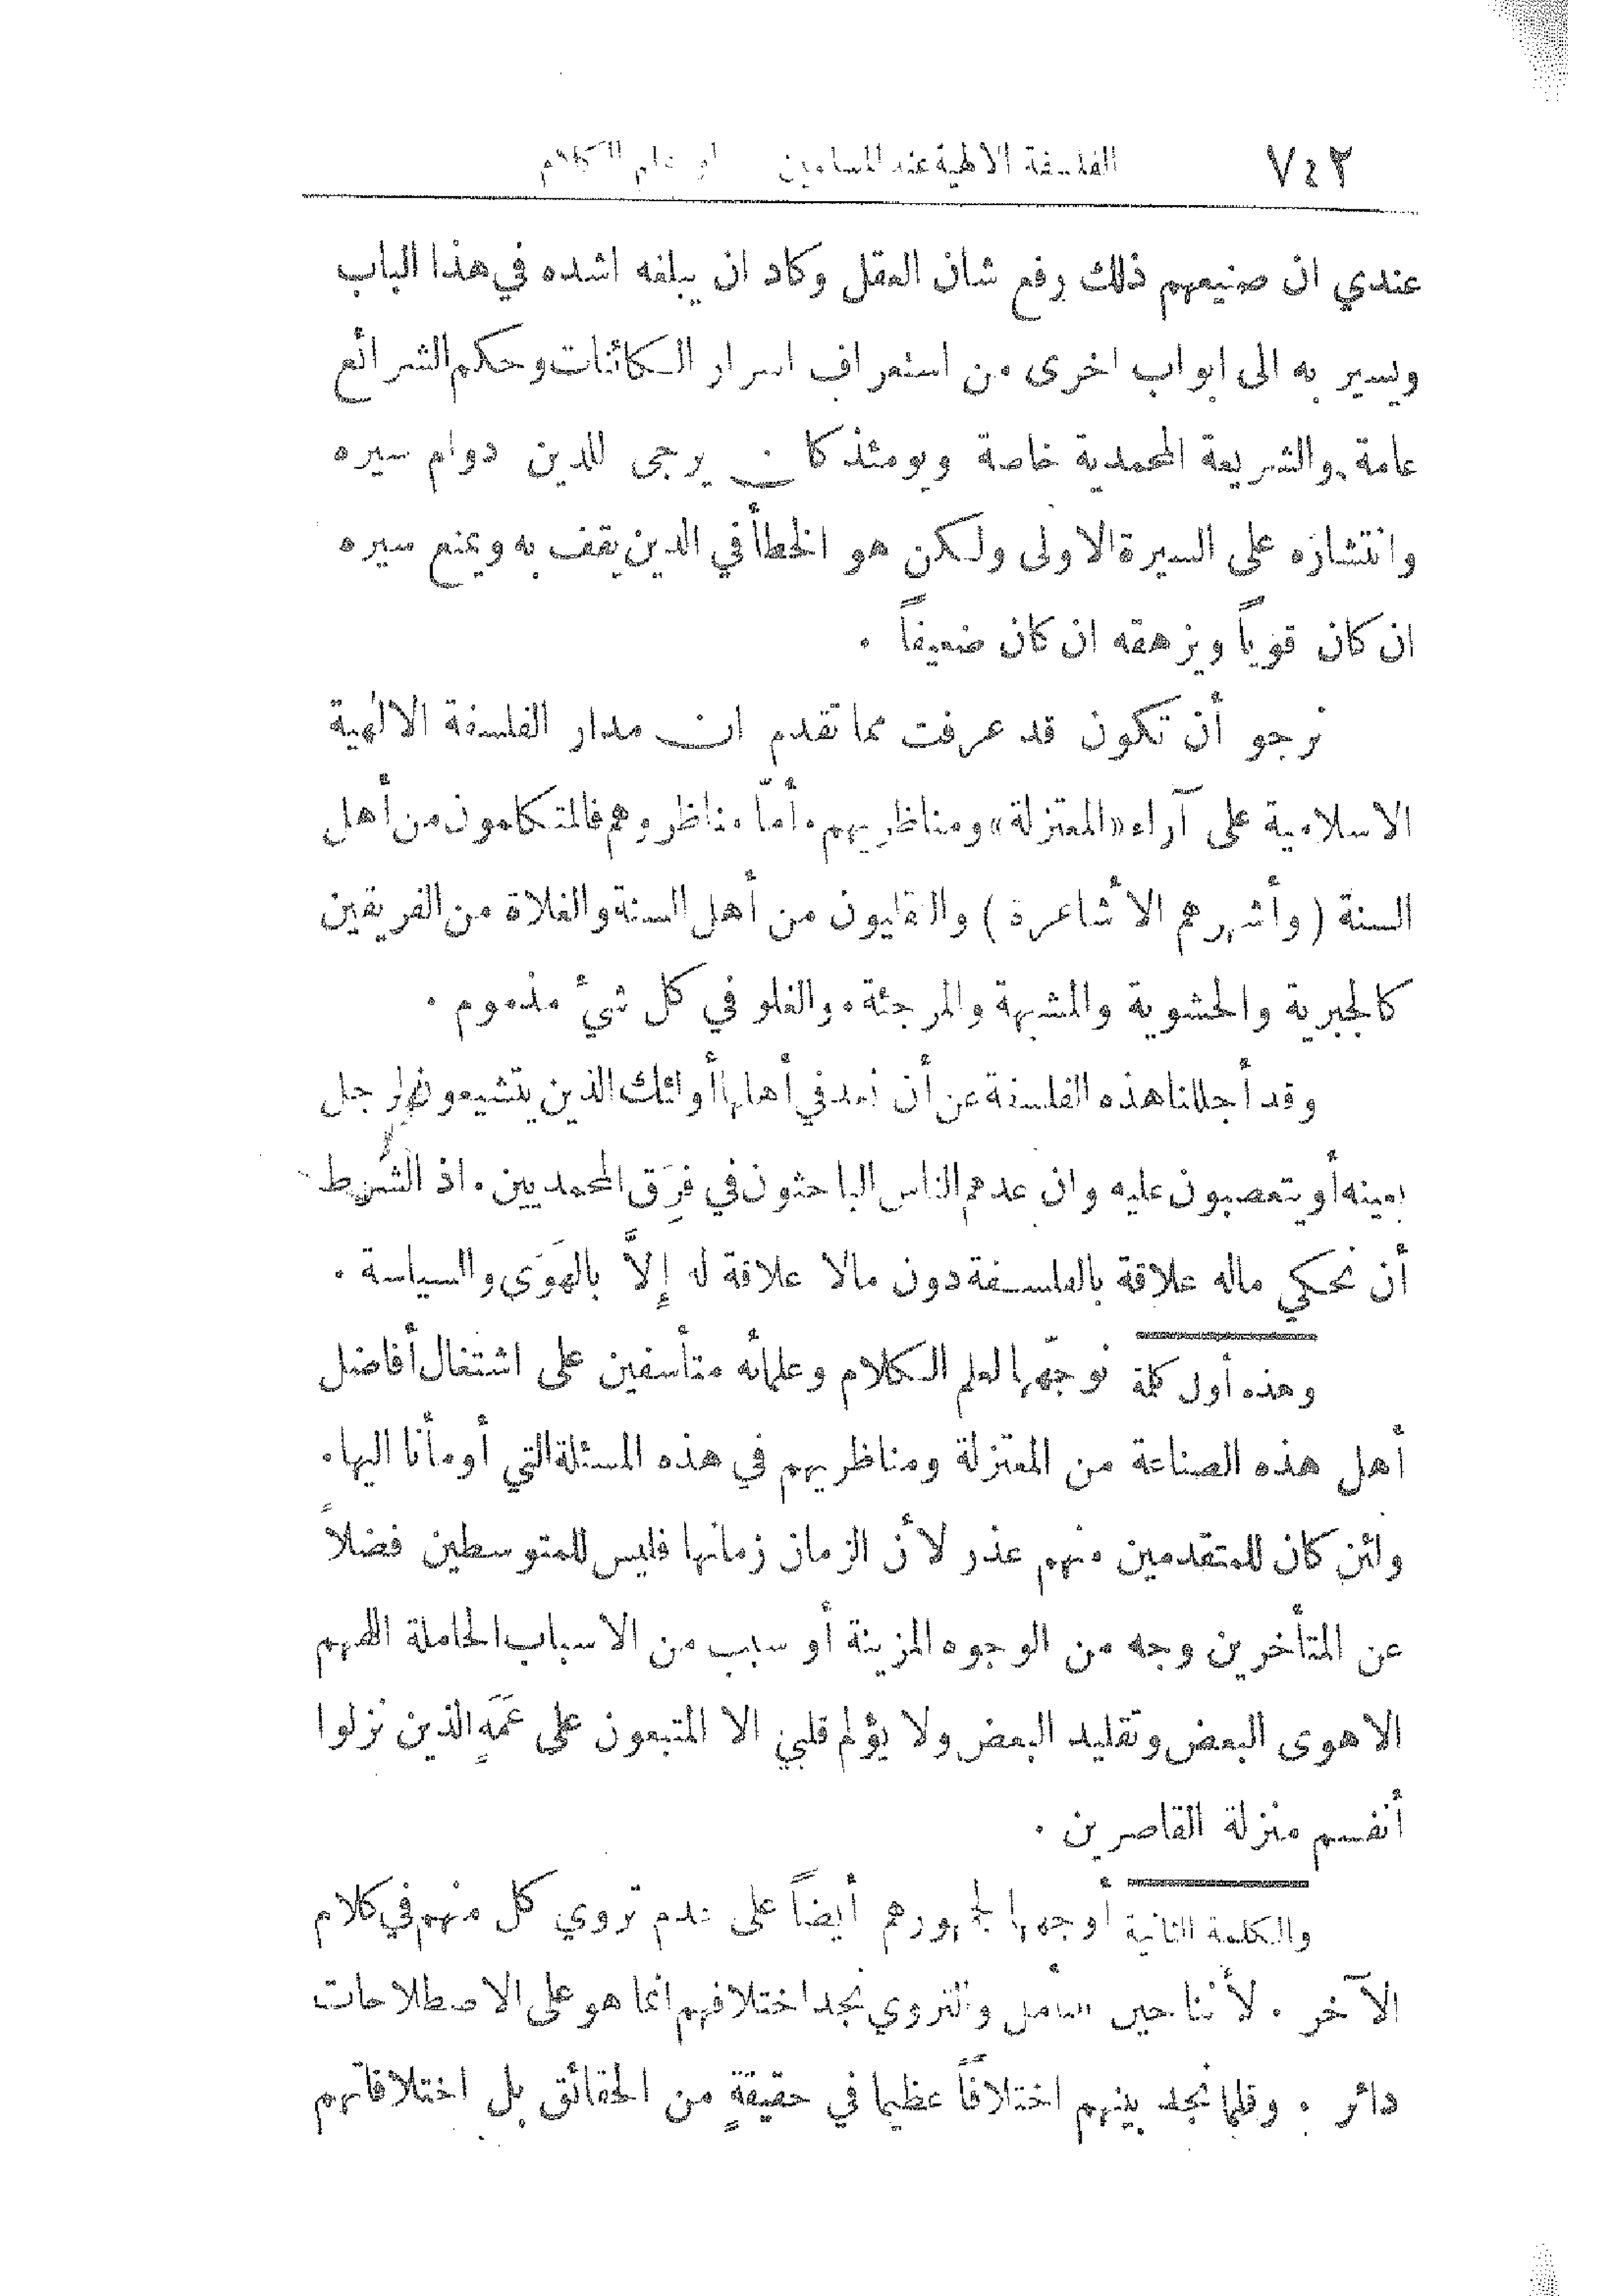 ٧٤٢ الفلسفة الالهية عند المسلمين او علم الكلام
عندي ان صنيعهم ذلك رفع شان العقل وكاد ان يبلغه اشده في هذا الباب
ويسير به الى ابواب اخرى من استعراف اسرار الكائنات وحكم الشرائع
عامة والشريعة المحمدية خاصة ويومئذ كان يرجى للدين دوام سيره
وانتشاره على السيرة الاولى ولكن هو الخطأ في الدين يقف به ويمنع سيره
ان كان قوياً ويزهقه ان كان ضعيفاً .
نرجو أن تكون قد عرفت مما تقدم ان مدار الفلسفة الالهية
الاسلامية على آراء «المعتزلة» ومناظريهم . أمّا مناظروهم فالمتكلمون من أهل
السنة ( وأشهرهم الأشاعرة ) والنقليون من أهل السنة والغلاة من الفريقين
كالجبرية والحشوية والمشبهة والمرجئة . والغلو في كل شيءٍ مذموم .
وقد أجللنا هذه الفلسفة عن أن نعد في أهلها أولئك الذين يتشيعون لرجل
بعينه أو يتعصبون عليه وان عدهم الناس الباحثون في فِرَق المحمديين . اذ الشرط
أن نحكي ماله علاقة بالفلسفة دون مالا علاقة له إلاَّ بالهَوَى والسياسة .
وهذه أول كلمة نوجّهها لعلم الكلام وعلمائه متأسفين على اشتغال أفاضل
أهل هذه الصناعة من المعتزلة ومناظريهم في هذه المسئلة التي أومأنا اليها .
ولئن كان للمتقدمين منهم عذر لأن الزمان زمانها فليس للمتوسطين فضلاً
عن المتأخرين وجه من الوجوه المزينة أو سبب من الاسباب الحاملة اللهم
الا هوى البعض وتقليد البعض ولا يؤلم قلبي الا المتبعون على عَمَهٍ الذين نزلوا
أنفسهم منزلة القاصرين .
والكلمة الثانية أوجهها لجمهورهم أيضاً على عدم تروي كل منهم في كلام
الآخر . لأننا حين التأمل والتروي نجد اختلافهم انما هو على الاصطلاحات
دائر . وقلما نجد بينهم اختلافاً عظيما في حقيقةٍ من الحقائق بل اختلافاتهم